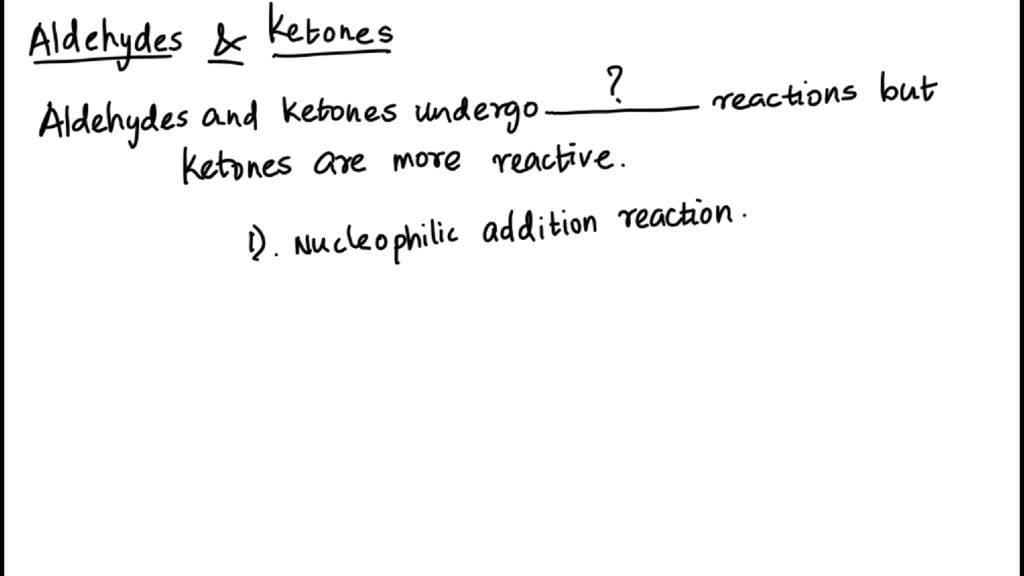 Aldehydes & Ketones
?
Aldehydes and Ketones undergo ______ reactions but
Ketones are more reactive.
1). Nucleophilic addition reaction.